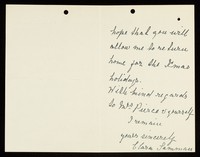 hope that you will
allow me to return
home for the Xmas
holidays.
With kind regards
to Mrs Pierce & yourself
I remain
yours sincerely
Clara